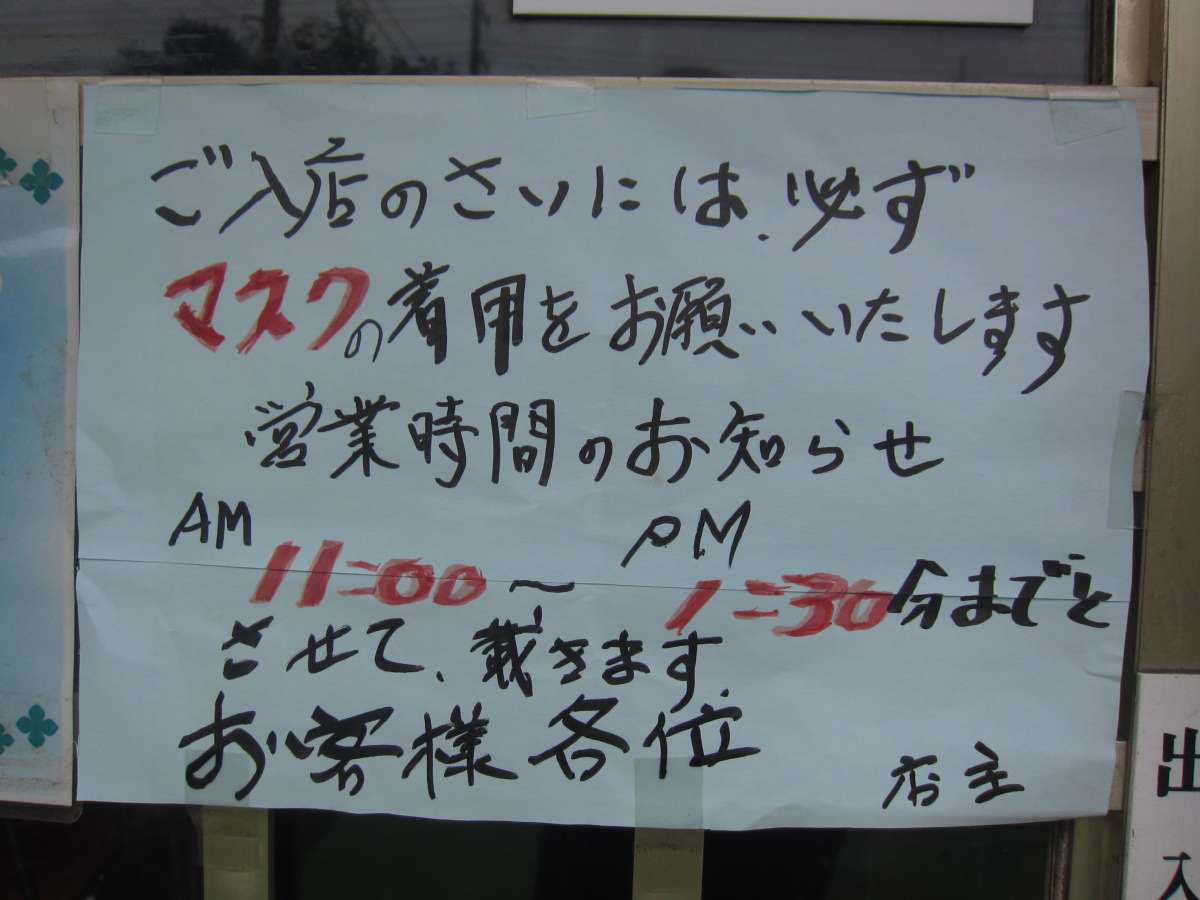 ご入店のさいには、必ず
マスクの着用をお願いいたします
営業時間のお知らせ
AM 11:00～PM 1:30分までと
させて、戴きます。
お客様各位
店主
出
入